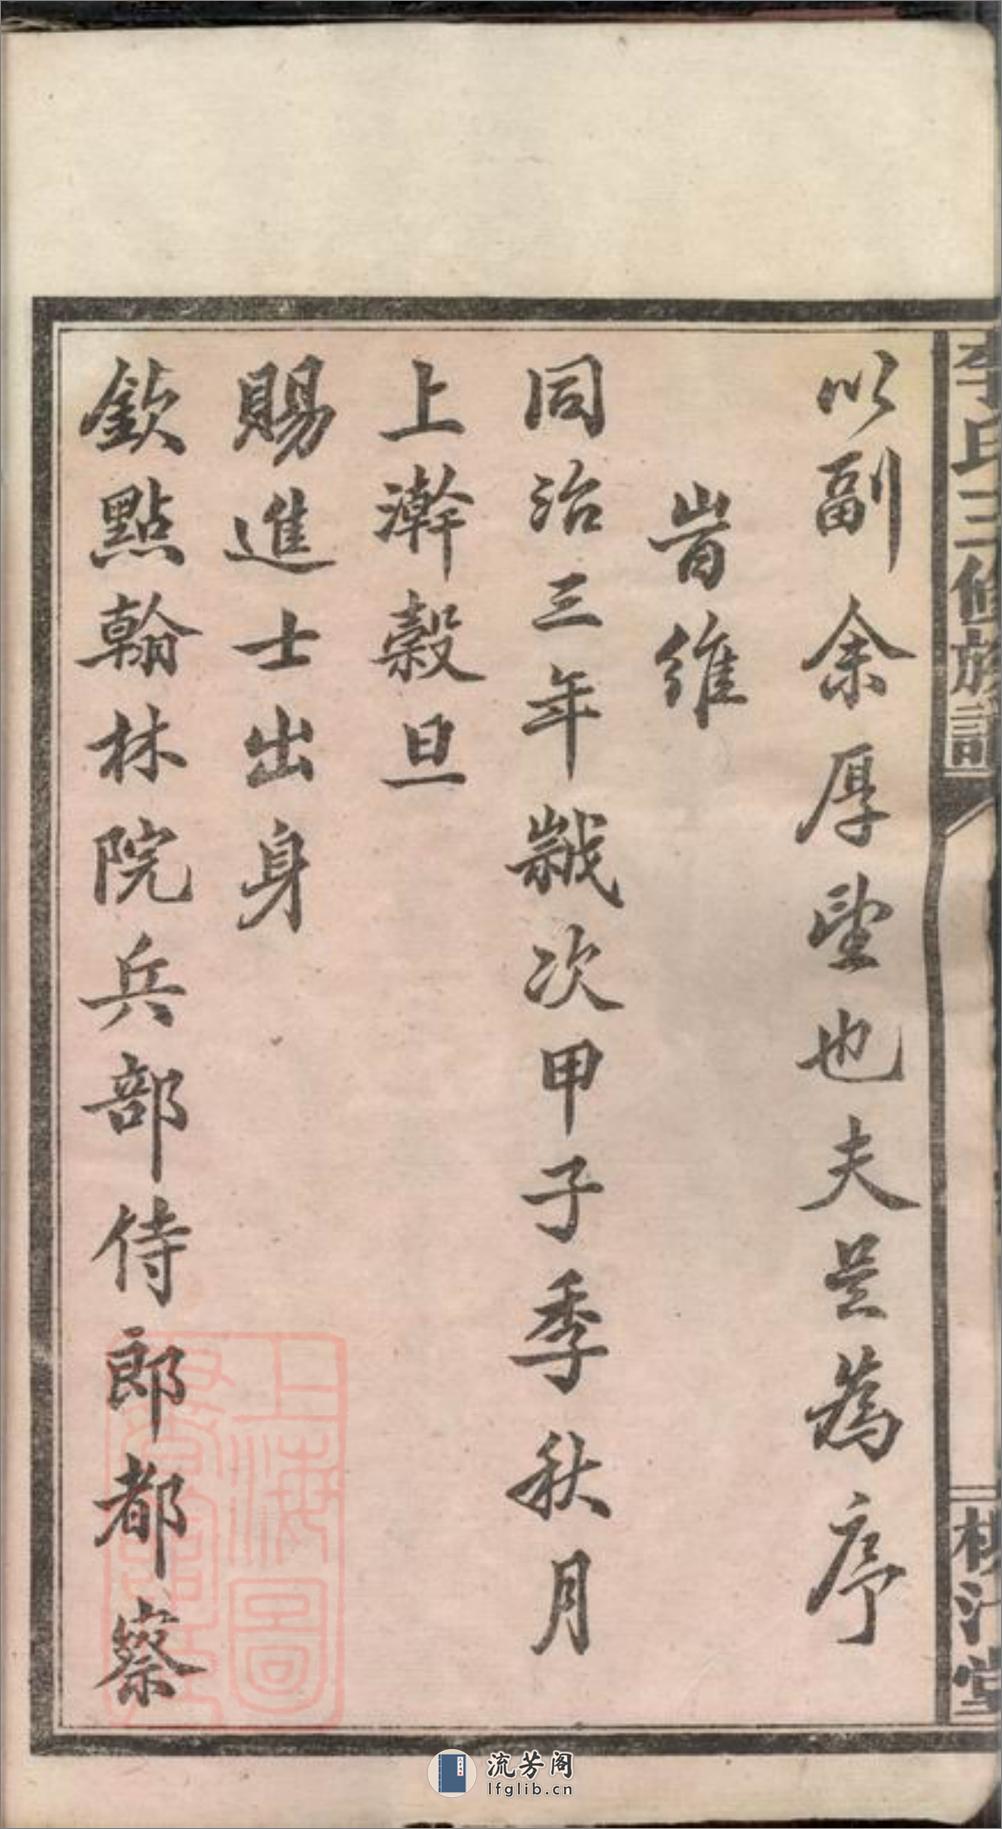 李氏三修族譜
以副余厚望也夫是為序
旹維
同治三年歲次甲子季秋月
上澣穀旦
賜進士出身
欽點翰林院兵部侍郎都察
上海圖
流芳阁
lfglib.cn